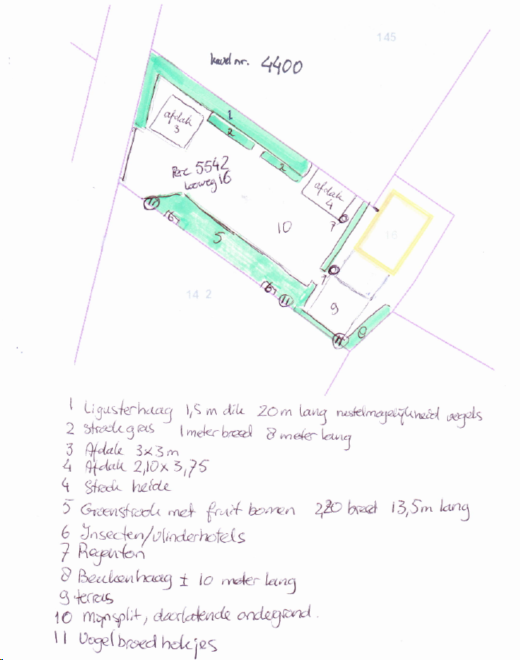 145
kavel nr. 4400
afdak
3
1
2
2
afdak
4
Per. 5542
Looweg 16
7
16
10
11
6
5
7
6
11
9
8
11
14 2
1 Ligusterhaag 1,5 m dik 20 m lang nestelmogelijkheid vogels
2 strook gras 1 meter breed 8 meter lang
3 Afdak 3x3 m
4 Afdak 2,10 x 3,75
4 Strook heide
5 Groenstrook met fruit bomen 2,20 breed 13,5 m lang
6 Insecten/vlinderhotels
7 Regenton
8 Beukenhaag ± 10 meter lang
9 terras
10 Mijnsplit, doorlatende ondergrond.
11 Vogelbroedhokjes